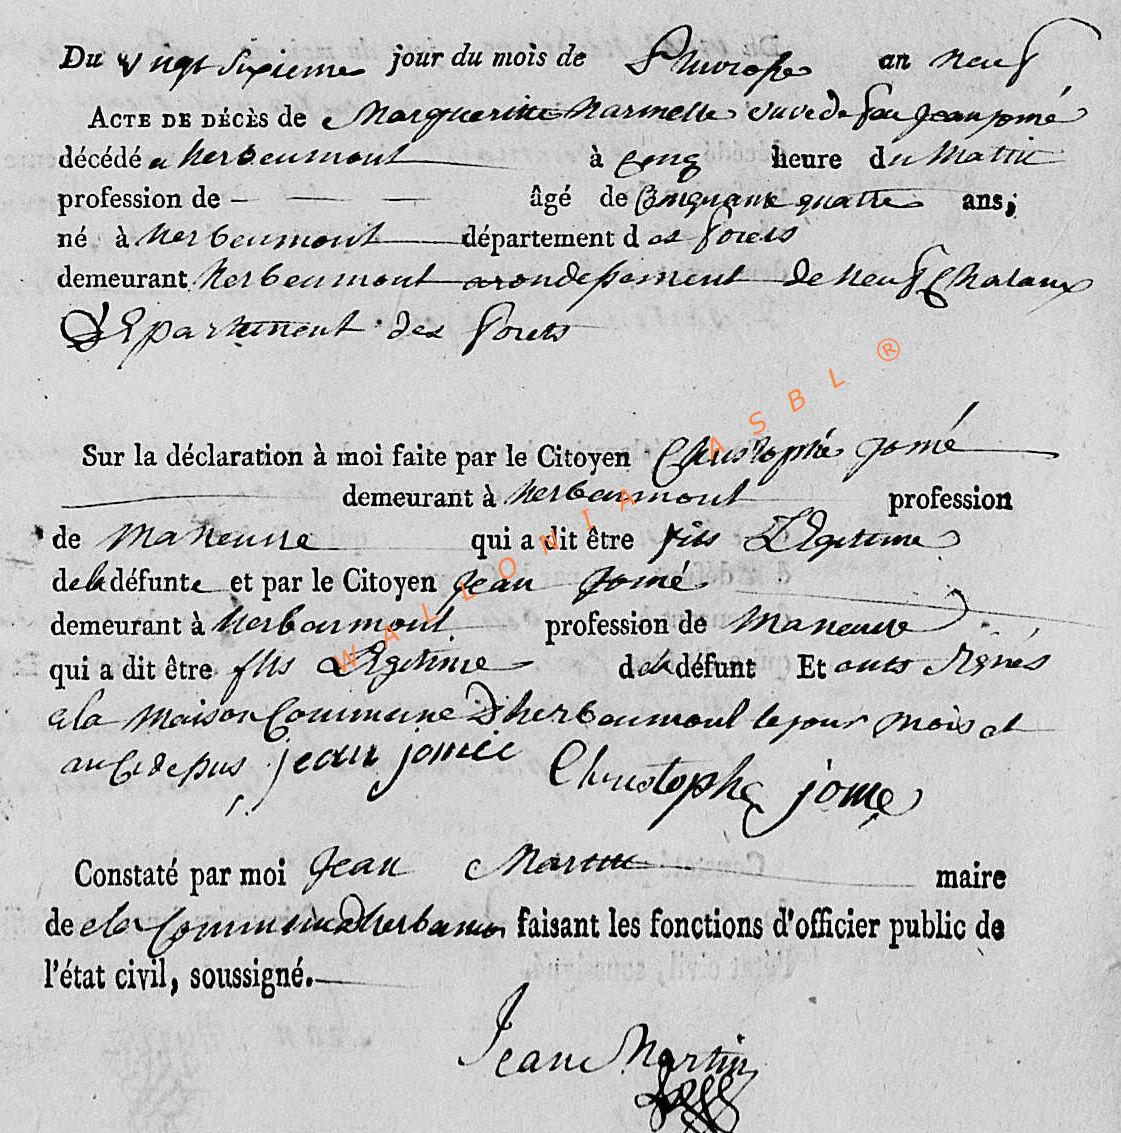 Du vingt Sixieme jour du mois de Pluviose an neuf
ACTE DE DÉCÈS de Margueritte Marmelle veuve de feu Jean Jomé
décédé a herbeumont à Cinq heure du Matin
profession de — — — âgé de Cinquante quattre ans;
né à herbeumont département des forets
demeurant herbeumont arondessement de neufChataux
Département des forets
Sur la déclaration à moi faite par le Citoyen Christophé Jomé
demeurant à herbeumont profession
de Maneuvre qui a dit être fils Légitime
de la défunte et par le Citoyen Jean Jomé
demeurant à herbeumont profession de Maneuvre
qui a dit être fils Légitime de la défunt Et onts Signés
a la Maison Commune D'herbeumont le jour Mois et
an Cidesus jean jomée Christophe jome
Constaté par moi Jean Martin maire
de la Commune dherbeumon faisant les fonctions d'officier public de
l'état civil, soussigné.
Jean Martin
WALLONIA ASBL ®